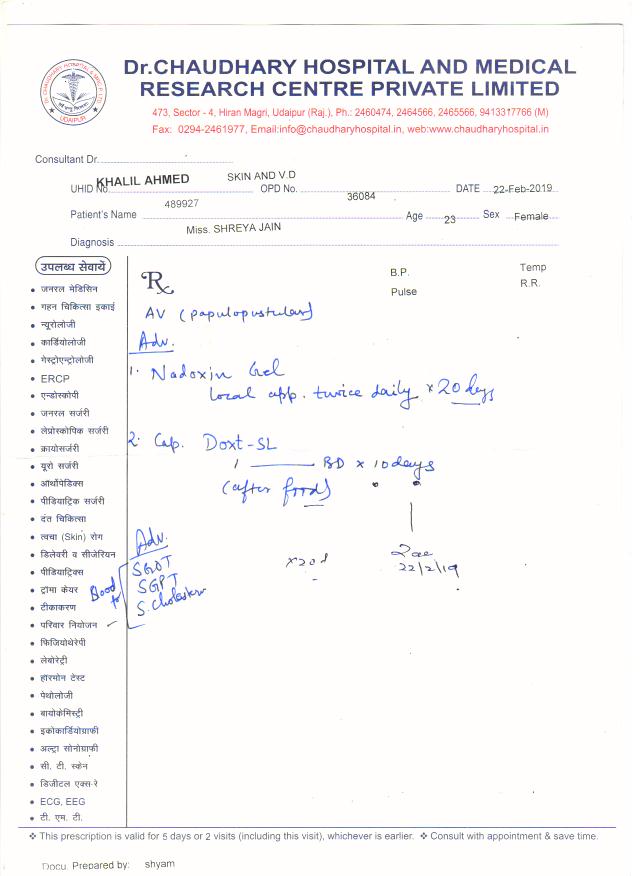 Dr.CHAUDHARY HOSPITAL AND MEDICAL
RESEARCH CENTRE PRIVATE LIMITED
473, Sector - 4, Hiran Magri, Udaipur (Raj.), Ph.: 2460474, 2464566, 2465566, 9413317766 (M)
Fax: 0294-2461977, Email:info@chaudharyhospital.in, web:www.chaudharyhospital.in
UDAIPUR
Consultant Dr.
KHALIL AHMED SKIN AND V.D
UHID No. OPD No. 36084 DATE 22-Feb-2019
489927
Patient's Name Age 23 Sex Female
Miss. SHREYA JAIN
Diagnosis
उपलब्ध सेवायें
• जनरल मेडिसिन
• गहन चिकित्सा इकाई
• न्यूरोलोजी
• कार्डियोलोजी
• गेस्ट्रोएन्ट्रोलोजी
• ERCP
• एन्डोस्कोपी
• जनरल सर्जरी
• लेप्रोस्कोपिक सर्जरी
• क्रायोसर्जरी
• यूरो सर्जरी
• ऑर्थोपेडिक्स
• पीडियाट्रिक सर्जरी
• दंत चिकित्सा
• त्वचा (Skin) रोग
• डिलेवरी व सीजेरियन
• पीडियाट्रिक्स
• ट्रॉमा केयर
• टीकाकरण
• परिवार नियोजन
• फिजियोथेरेपी
• लेबोरेट्री
• हॉरमोन टेस्ट
• पेथोलोजी
• बायोकेमिस्ट्री
• इकोकार्डियोग्राफी
• अल्ट्रा सोनोग्राफी
• सी. टी. स्केन
• डिजीटल एक्स-रे
• ECG, EEG
• टी. एम. टी.
Rx
B.P. Temp
Pulse R.R.
AV (papulopustular)
Adv.
1. Nadoxin Gel
local app. twice daily x 20 days
2. Cap. Doxt-SL
1 —— BD x 10 days
(after food)
Adv.
Blood SGOT x 20d
SGPT 22/2/19
S. Cholesterol
❖ This prescription is valid for 5 days or 2 visits (including this visit), whichever is earlier. ❖ Consult with appointment & save time.
Docu. Prepared by: shyam